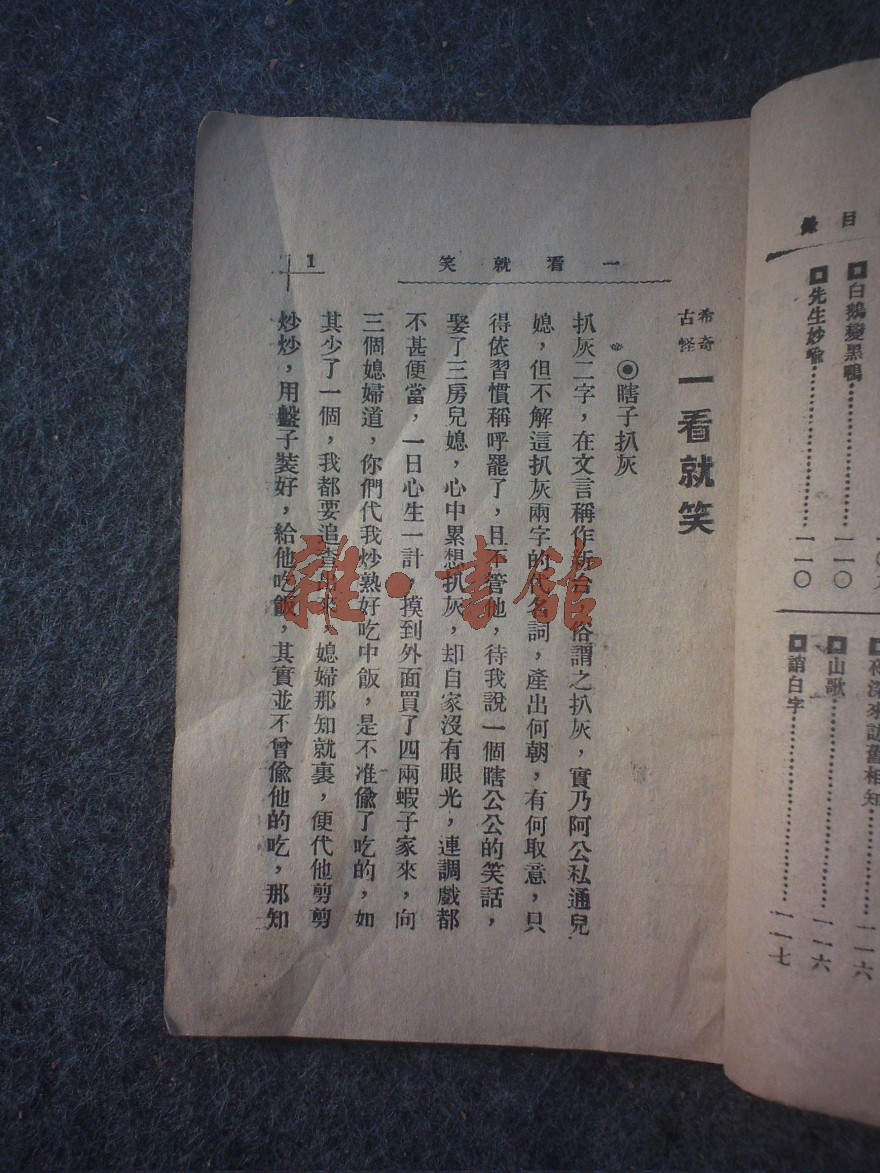 一看就笑
1
希奇
古怪
一看就笑
◉瞎子扒灰
扒灰二字，在文言稱作新台，俗謂之扒灰，實乃阿公私通兒
媳，但不解這扒灰兩字的代名詞，產出何朝，有何取意，只
得依習慣稱呼罷了，且不管他，待我說一個瞎公公的笑話，
娶了三房兒媳，心中累想扒灰，却自家沒有眼光，連調戲都
不甚便當，一日心生一計，摸到外面買了四兩蝦子家來，向
三個媳婦道，你們代我炒熟好吃中飯，是不准偷了吃的，如
其少了一個，我都要追查出來，媳婦那知就裏，便代他剪剪
炒炒，用盤子裝好，給他吃飯，其實並不曾偷他的吃，那知
雜·書館
目錄
白鵝變黑鴨………一一〇
先生妙喻………一一〇
來訪舊相知………一一六
山歌………一一六
白字………一一七